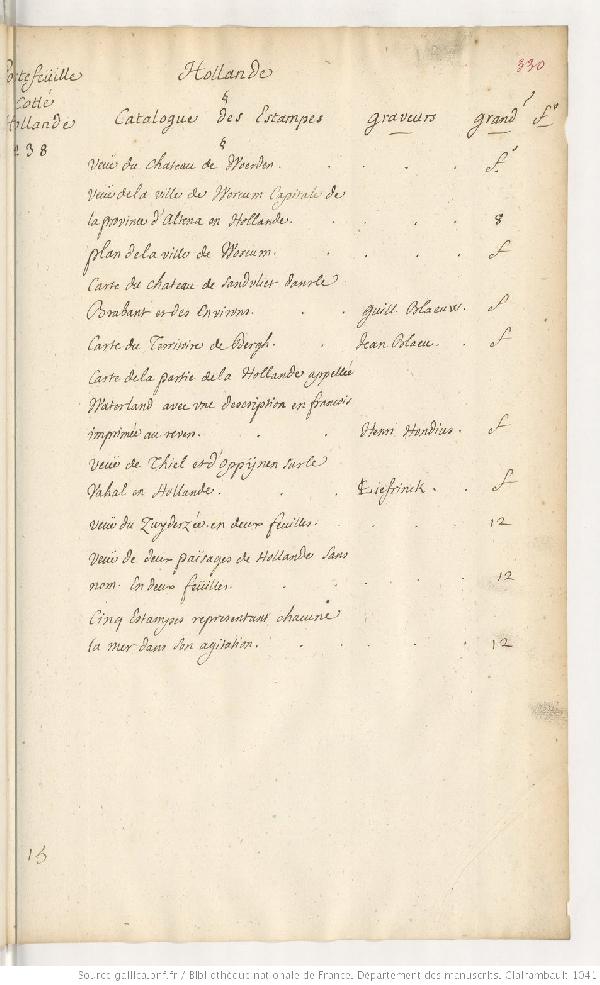 Portefeüille Hollande 330
Cotté §
Hollande Catalogue des Estampes graveurs grand.r f.o
238 §
Veüe du chateau de Woerden. f.o
Veüe de la ville de Worcum Capitale de
la province d'Altena en Hollande. 8
plan de la ville de Worcum. f
Carte du chateau de Sandvliet dans le
Brabant et des Environs. guill. Blaeuw. f
Carte du Territoire de Bergh. Jean Blaeu. f
Carte de la partie de la Hollande appellée
Waterland avec une description en francois
imprimée au revers. Henri Hondius. f
Veüe de Thiel et d'Oppijnen sur le
Vahal en Hollande. Liefrinck. f
Veüe du Zuyderzée en deux feuilles. 12
Veüe de deux païsages de Hollande sans
nom. En deux feüilles. 12
Cinq Estampes representant chacune
la mer dans son agitation. 12
15
Source gallica.bnf.fr / Bibliothèque nationale de France. Département des manuscrits. Clairambault 1041